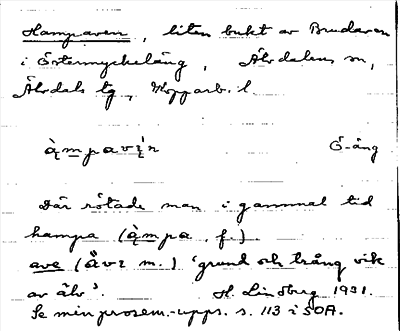 Hampaven, liten bukt av Brudaven
i Östermyckeläng, Älvdalens sn,
Älvdals tg, Kopparb. l.
àmpavın Ö-äng
Där rötade man i gammal tid
hampa (àmpa, f.).
ave (åvı m.) 'grund och trång vik
av älv'. H. Lindberg 1931.
Se min prosem.-upps. s. 113 i SOA.